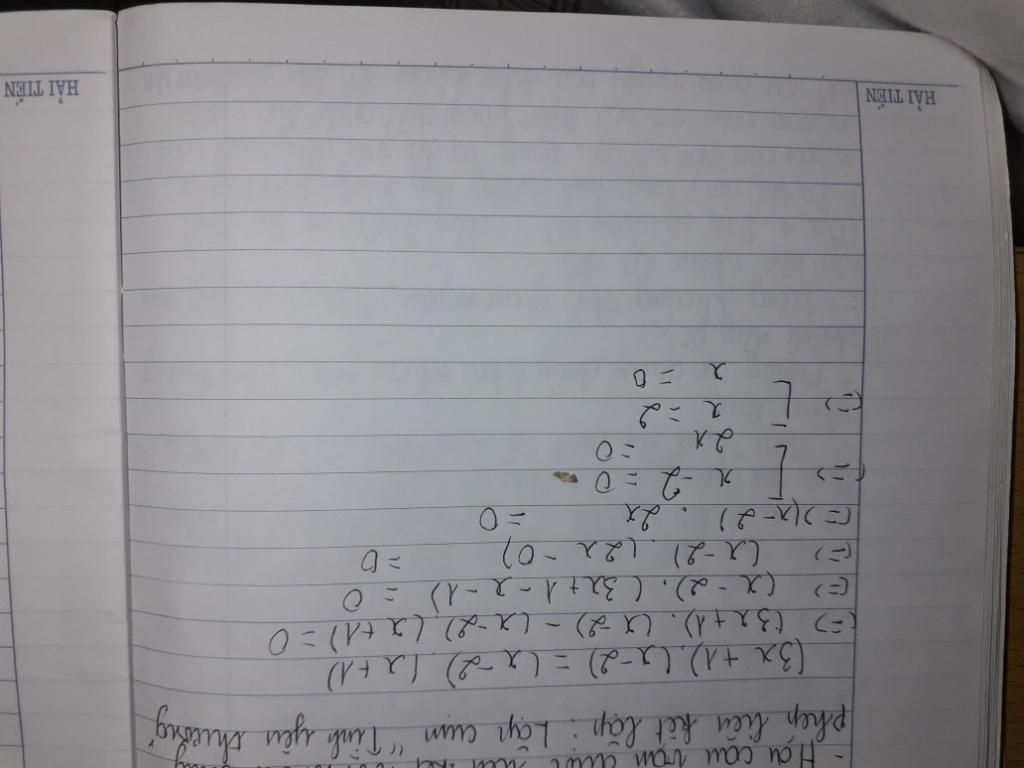 - Hai câu văn được liên kết
phép liên kết lặp: Lặp cụm "Tình yêu thương"
(3x + 1). (x - 2) = (x - 2). (x + 1)
(=) (3x + 1). (x - 2) - (x - 2). (x + 1) = 0
(=) (x - 2). (3x + 1 - x - 1) = 0
(=) (x - 2). (2x - 0) = 0
(=) (x - 2) . 2x = 0
(=) [ x - 2 = 0
2x = 0
(=) [ x = 2
x = 0
HẢI TIẾN
HẢI TIẾN